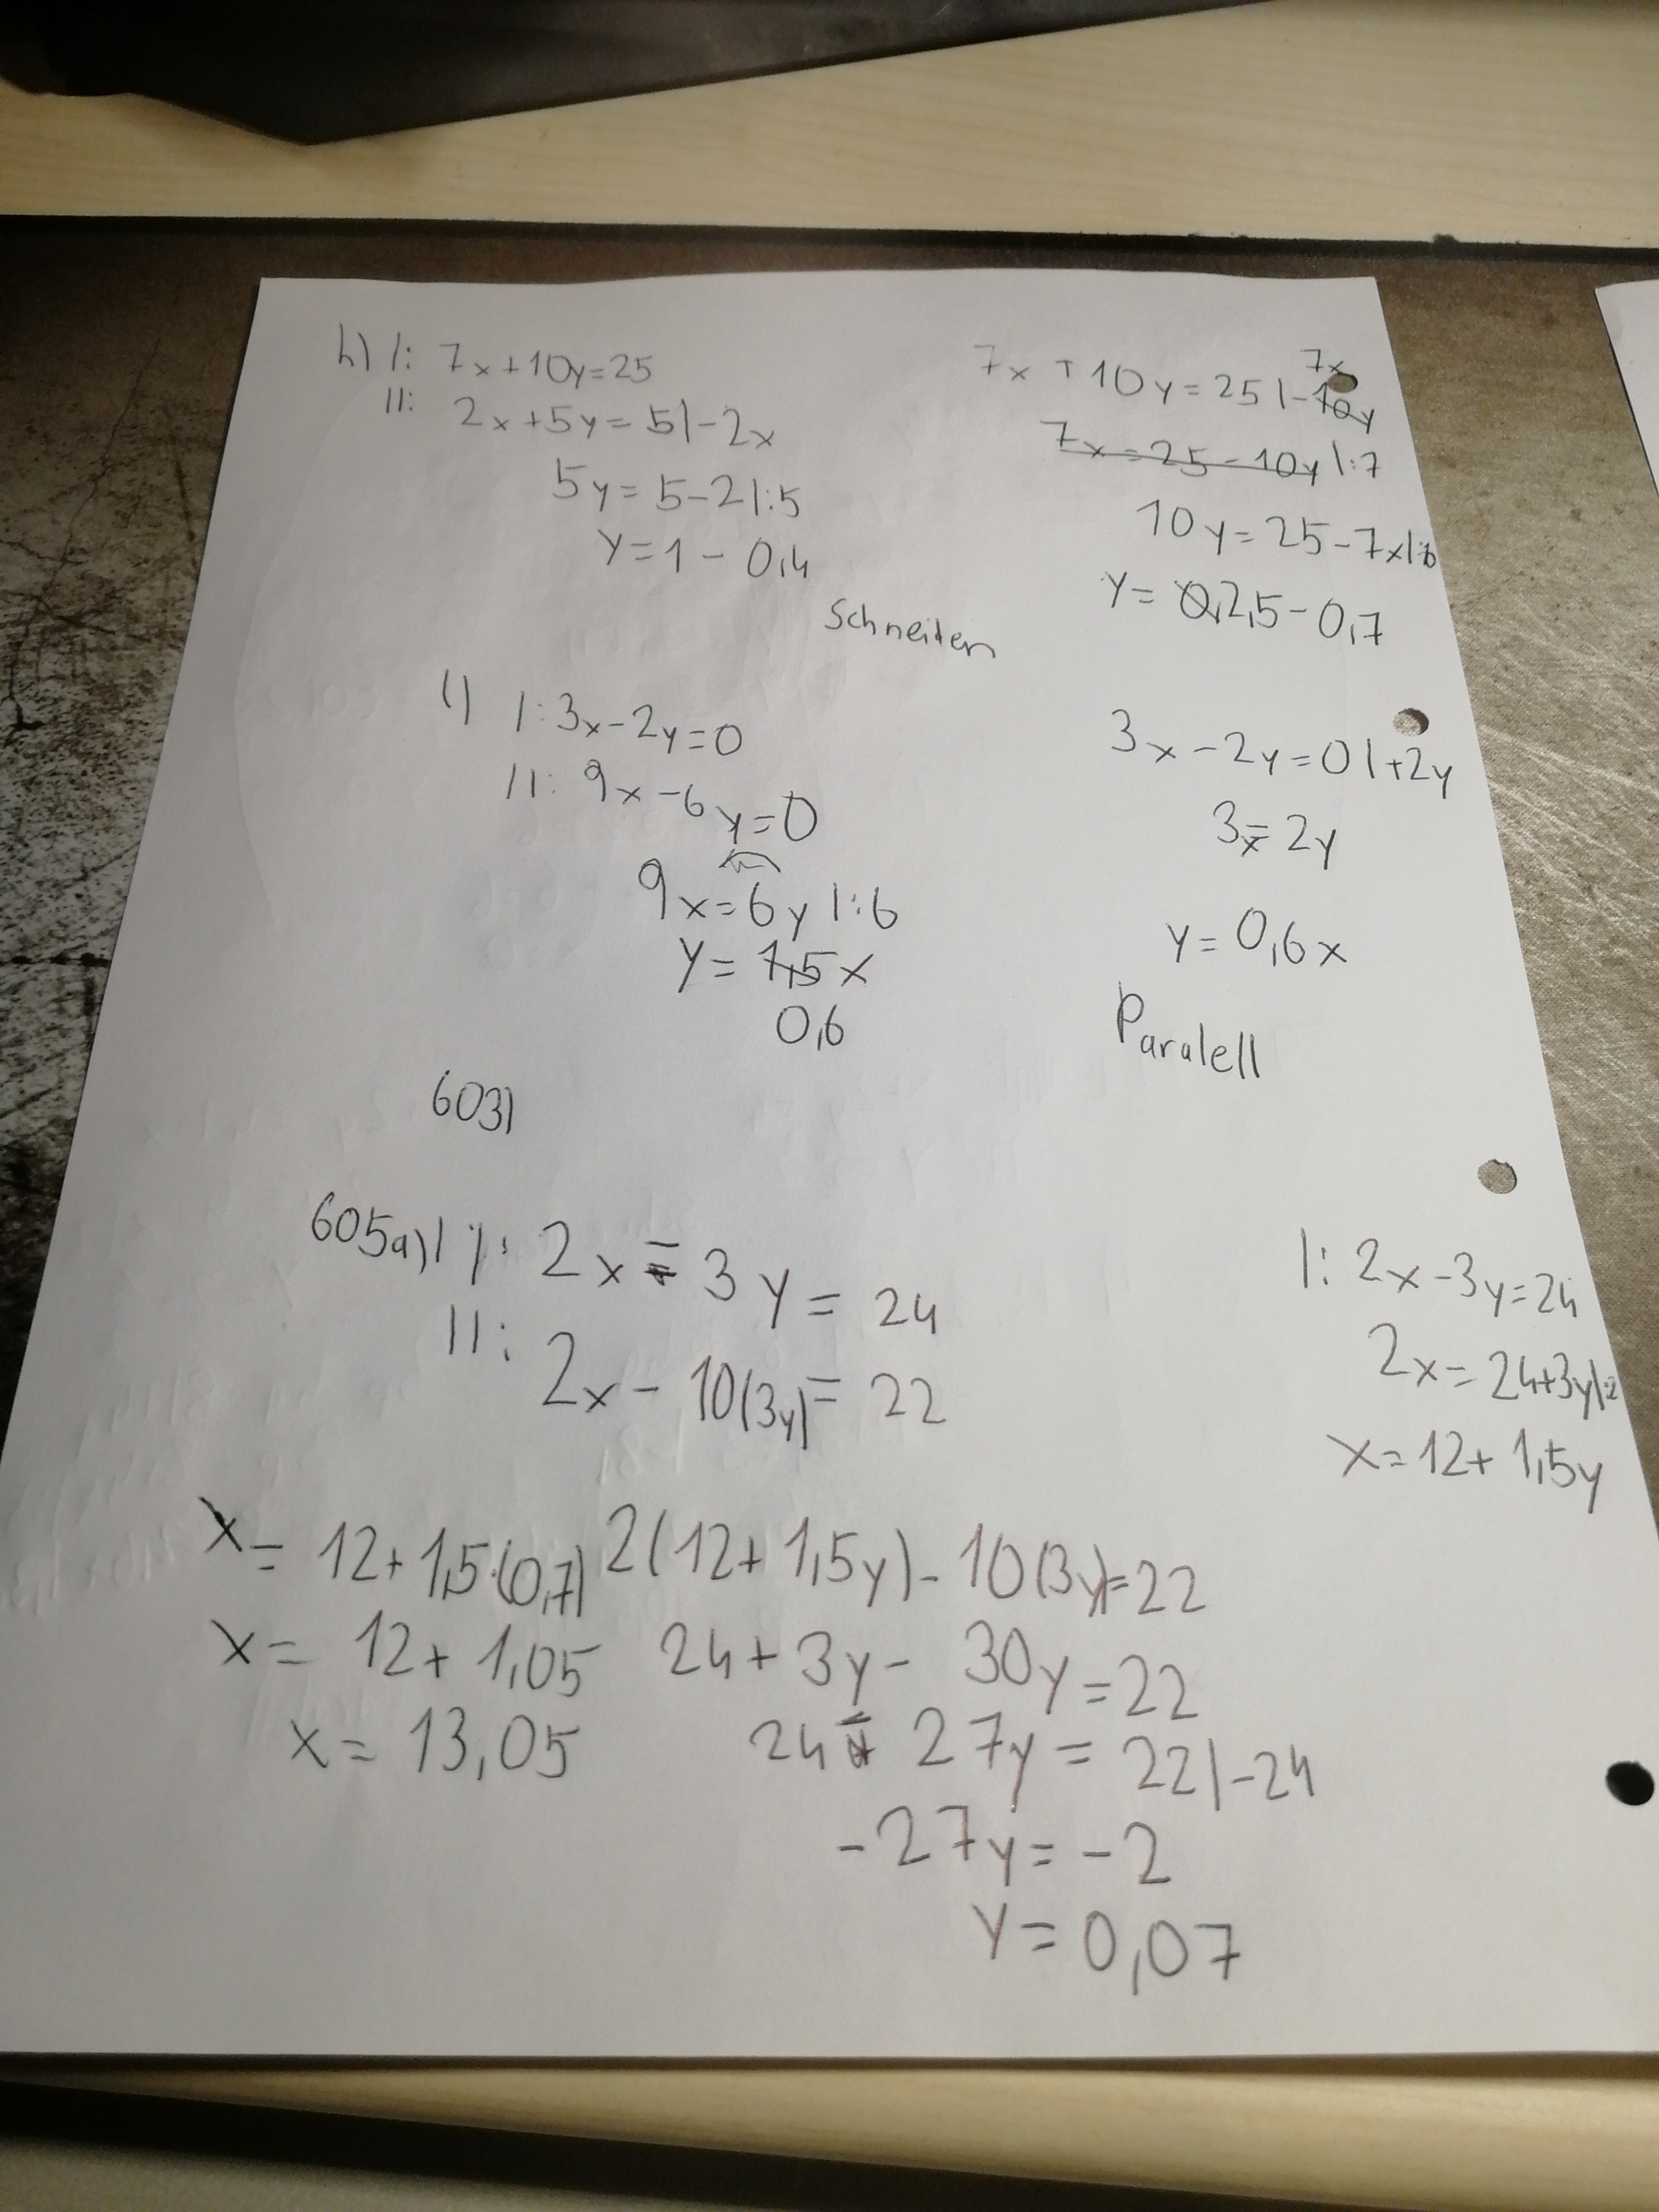 h) I: 7x+10y=25
II: 2x+5y=5|-2x
5y=5-2|:5
y=1-0,4
7x
7x+10y=25|-10y
7x=25-10y|:7
10y=25-7x|:10
y=0,2,5-0,7
Schneiden
i) I: 3x-2y=0
II: 9x-6y=0
9x=6y|:6
y=1,5x
0,6
3x-2y=0|+2y
3x=2y
y=0,6x
Paralell
603)
605a) I: 2x-3y=24
II: 2x-10(3y)=22
I: 2x-3y=24
2x=24+3y|:2
x=12+1,5y
x=12+1,5·(0,7)
x=12+1,05
x=13,05
2(12+1,5y)-10(3y)=22
24+3y-30y=22
24-27y=22|-24
-27y=-2
y=0,07